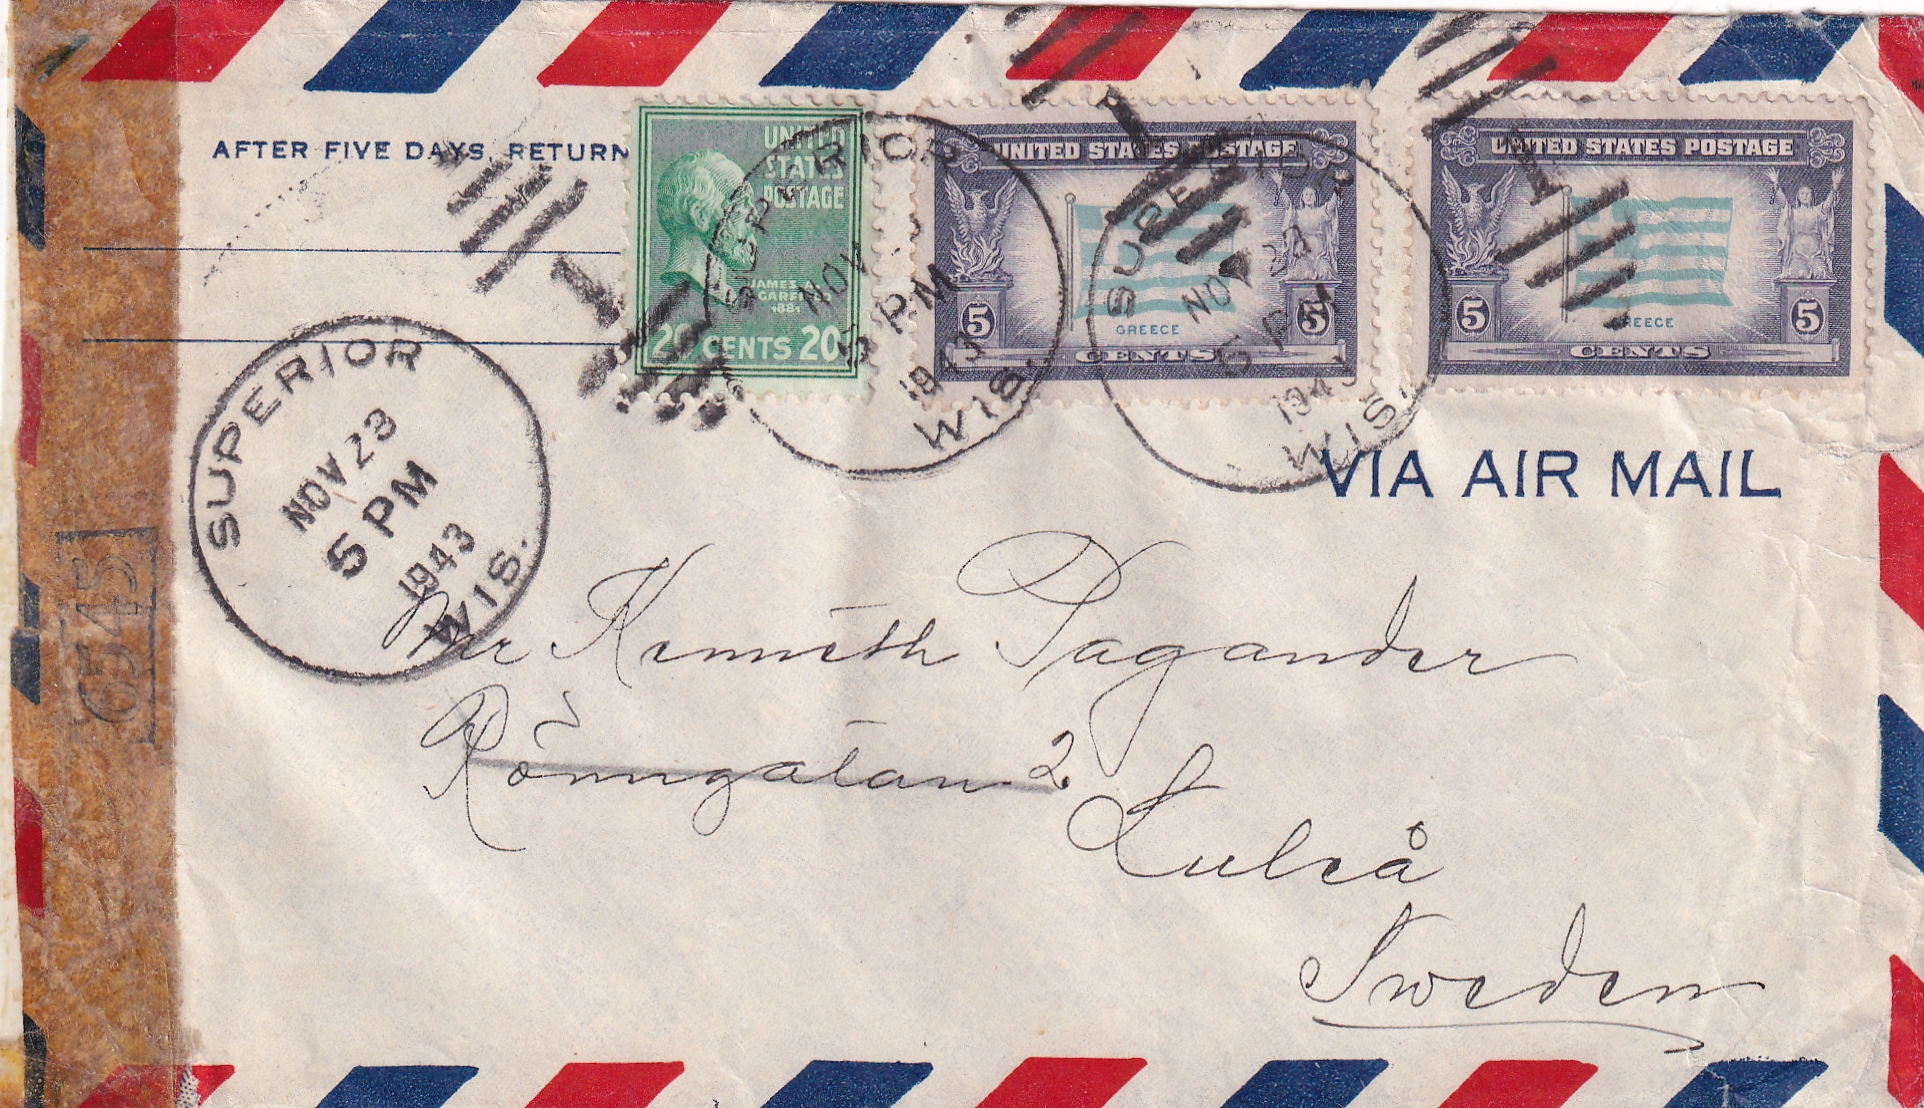 AFTER FIVE DAYS, RETURN
UNITED
STATES
POSTAGE
JAMES A.
GARFIELD
1881
20 CENTS 20
SUPERIOR
NOV
5 PM
1943
WIS.
UNITED STATES POSTAGE
5 GREECE 5
CENTS
SUPERIOR
NOV 23
5 PM
1943
WIS.
UNITED STATES POSTAGE
5 GREECE 5
CENTS
SUPERIOR
NOV 23
5 PM
1943
WIS.
VIA AIR MAIL
6545
Mr Kenneth Pagander
Rönngatan 2
Luleå
Sweden